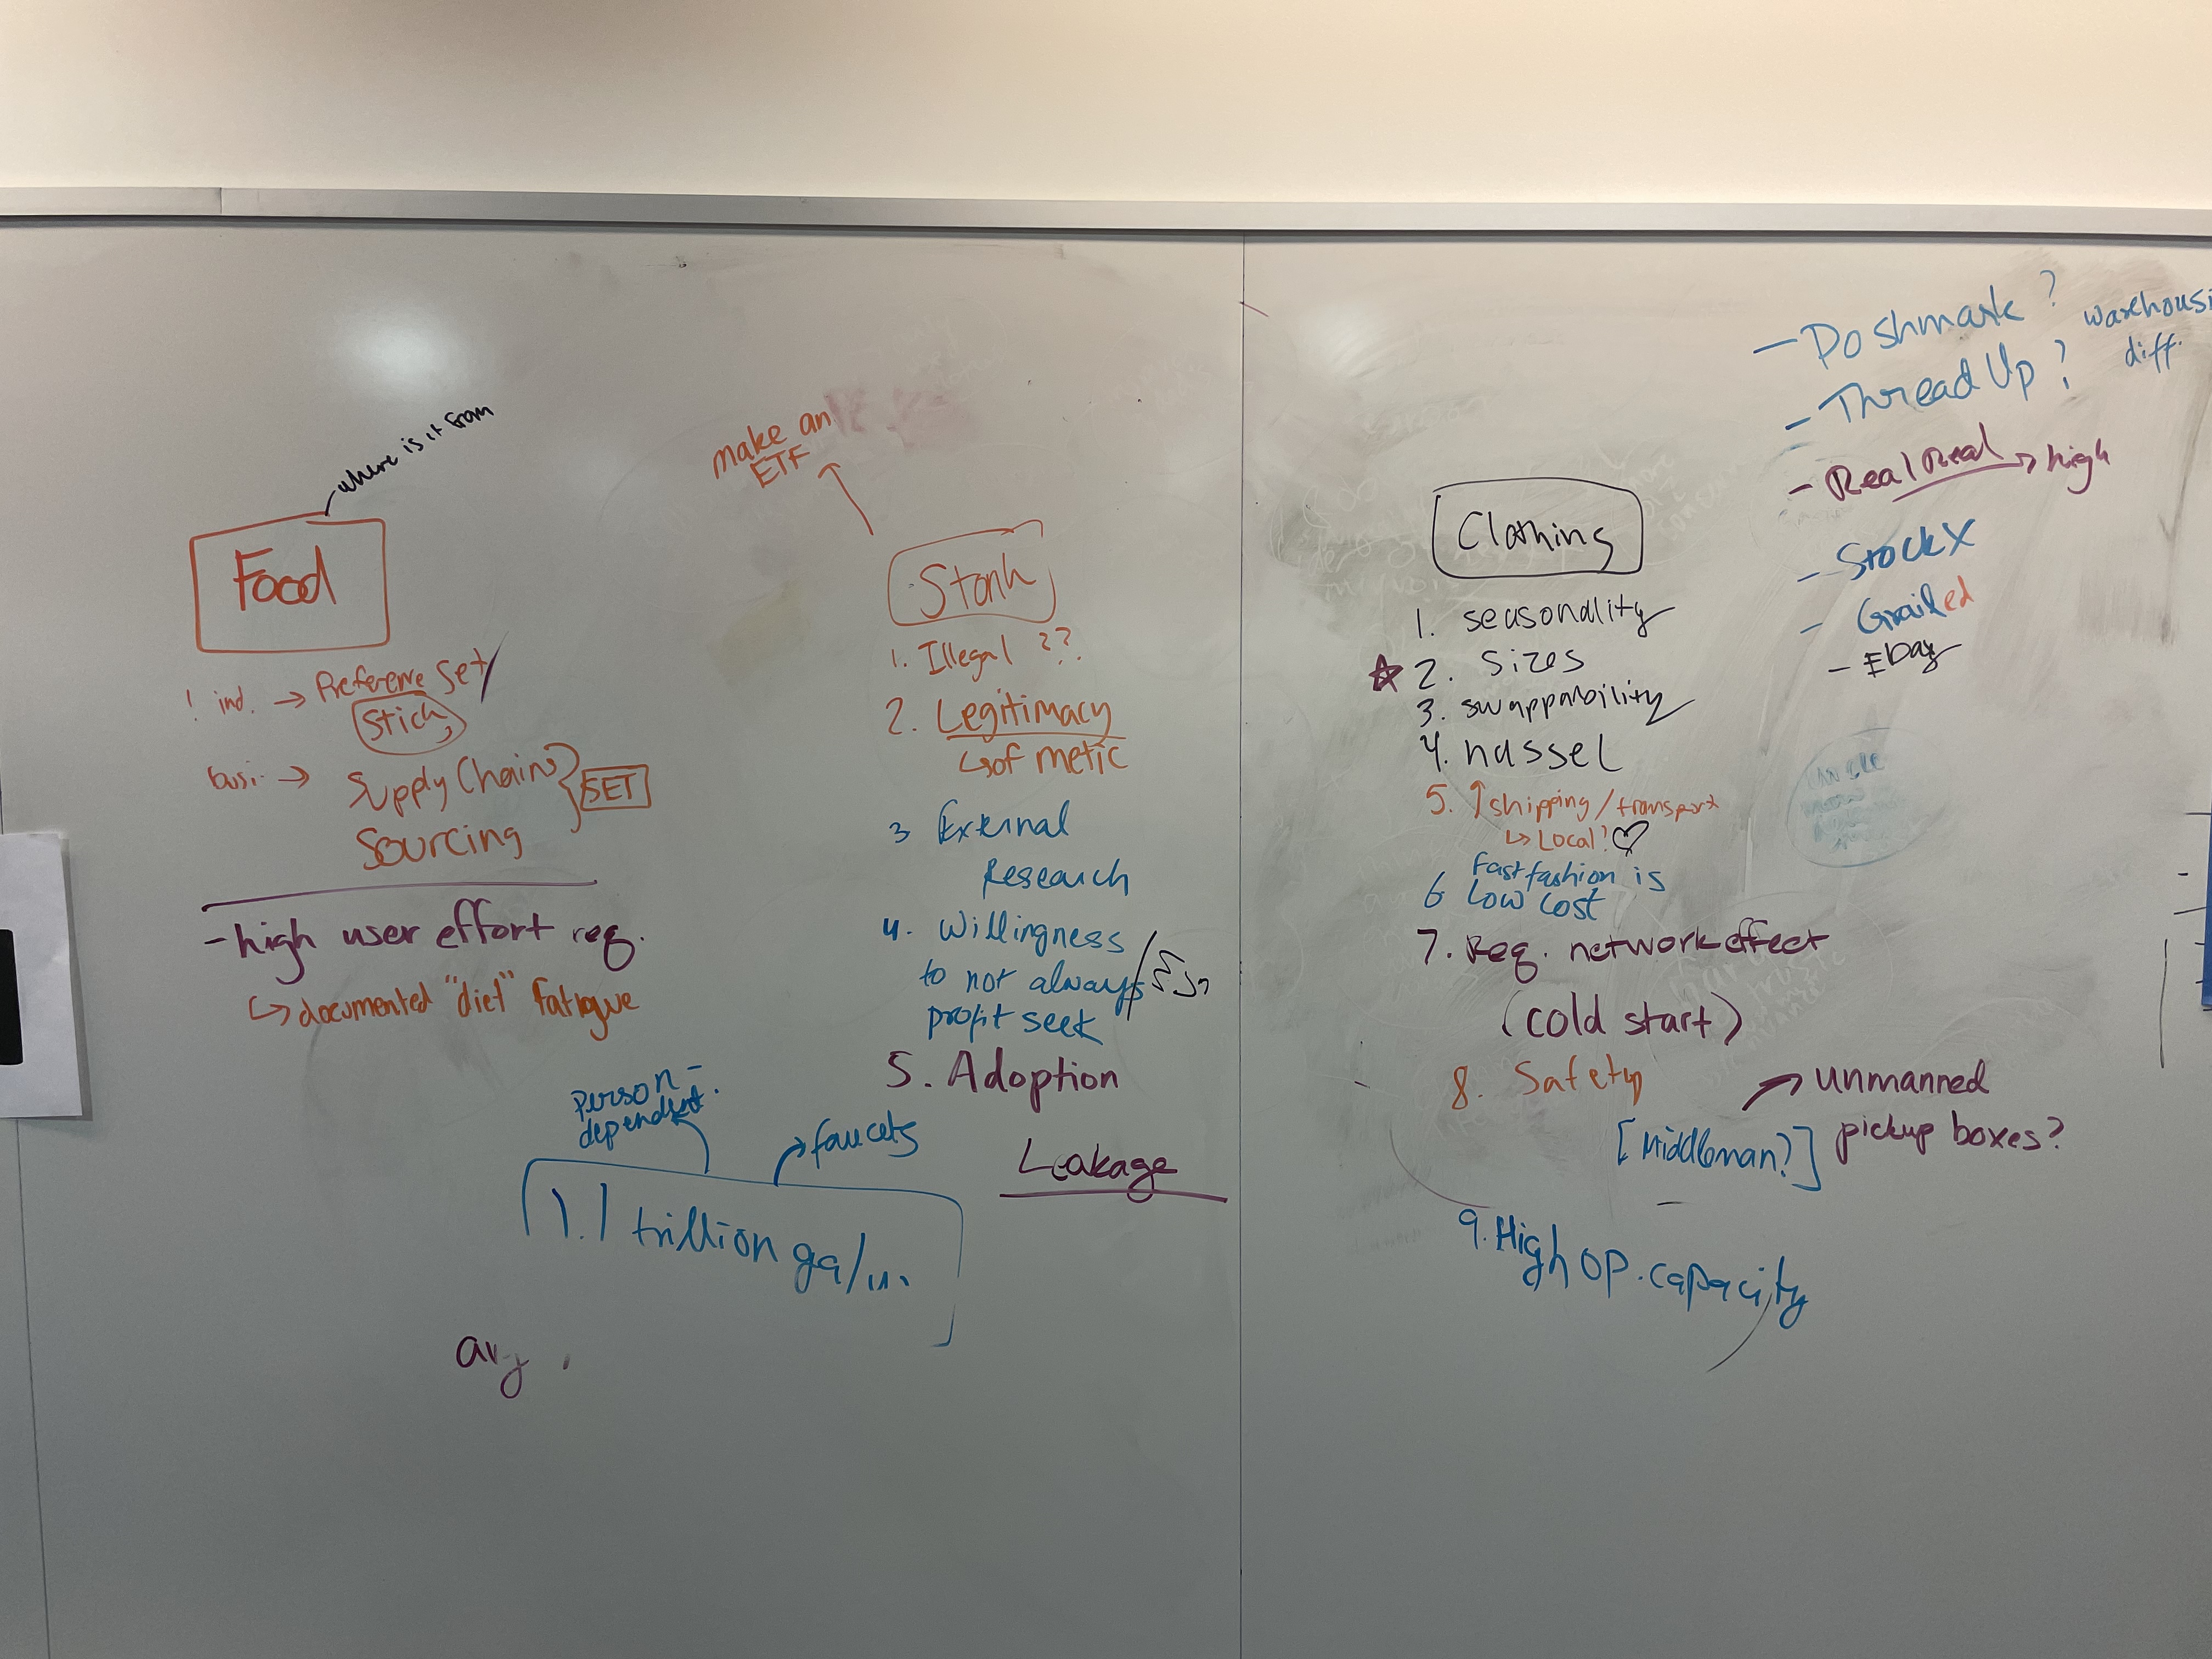 where is it from
Food
! ind. → Preference Set
Stick
busi. → Supply Chains
Sourcing
SET
- high user effort req.
↳ documented "diet" fatigue
make an
ETF
Stonk
1. Illegal ??
2. Legitimacy
↳ of metic
3 External
Research
4. Willingness
to not always
profit seek
5. Adoption
Leakage
person-
dependent.
→ faucets
1.1 trillion ga/...
avg
Clothing
1. seasonality
☆ 2. Sizes
3. swappability
4. hassel
5. ↑ shipping/transport
↳ Local! ♡
6 Fast fashion is
Low cost
7. Req. network effect
(cold start)
8. Safety
[Middleman?]
→ unmanned
pickup boxes?
9. High OP. capacity
- Poshmark ?
- ThreadUp ?
diff.
- RealReal → high
- StockX
- Grailed
- EBay